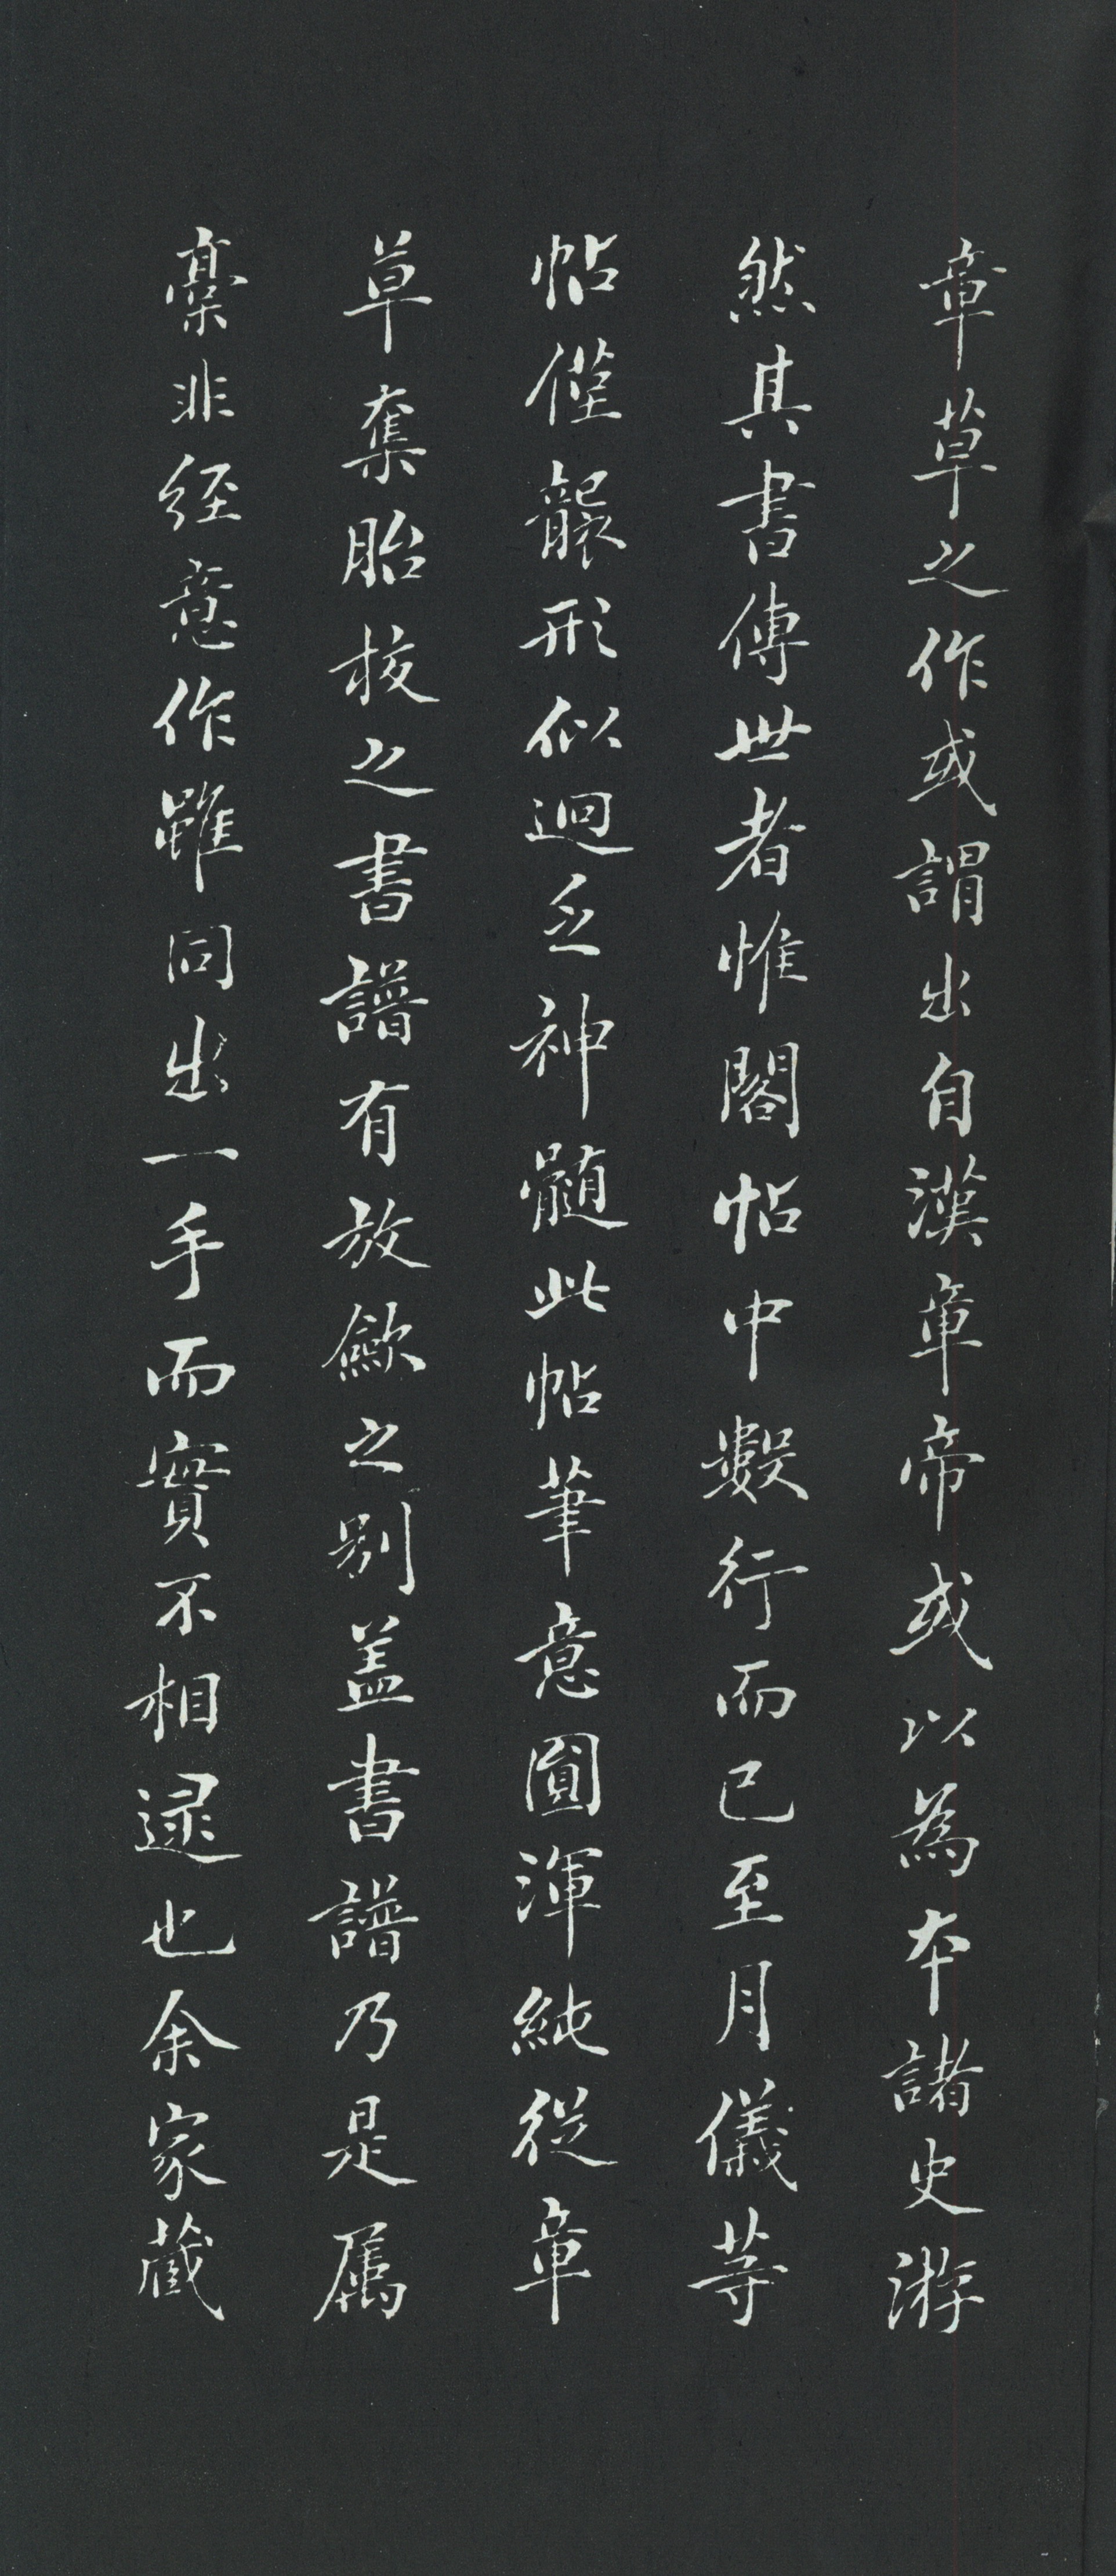 章草之作或謂出自漢章帝或以為本諸史游
然其書傳世者惟閣帖中數行而已至月儀等
帖僅襲形似迥乏神髓此帖筆意圓渾純從章
草奪胎校之書譜有放斂之別盖書譜乃是屬
稾非經意作雖同出一手而實不相逮也余家藏